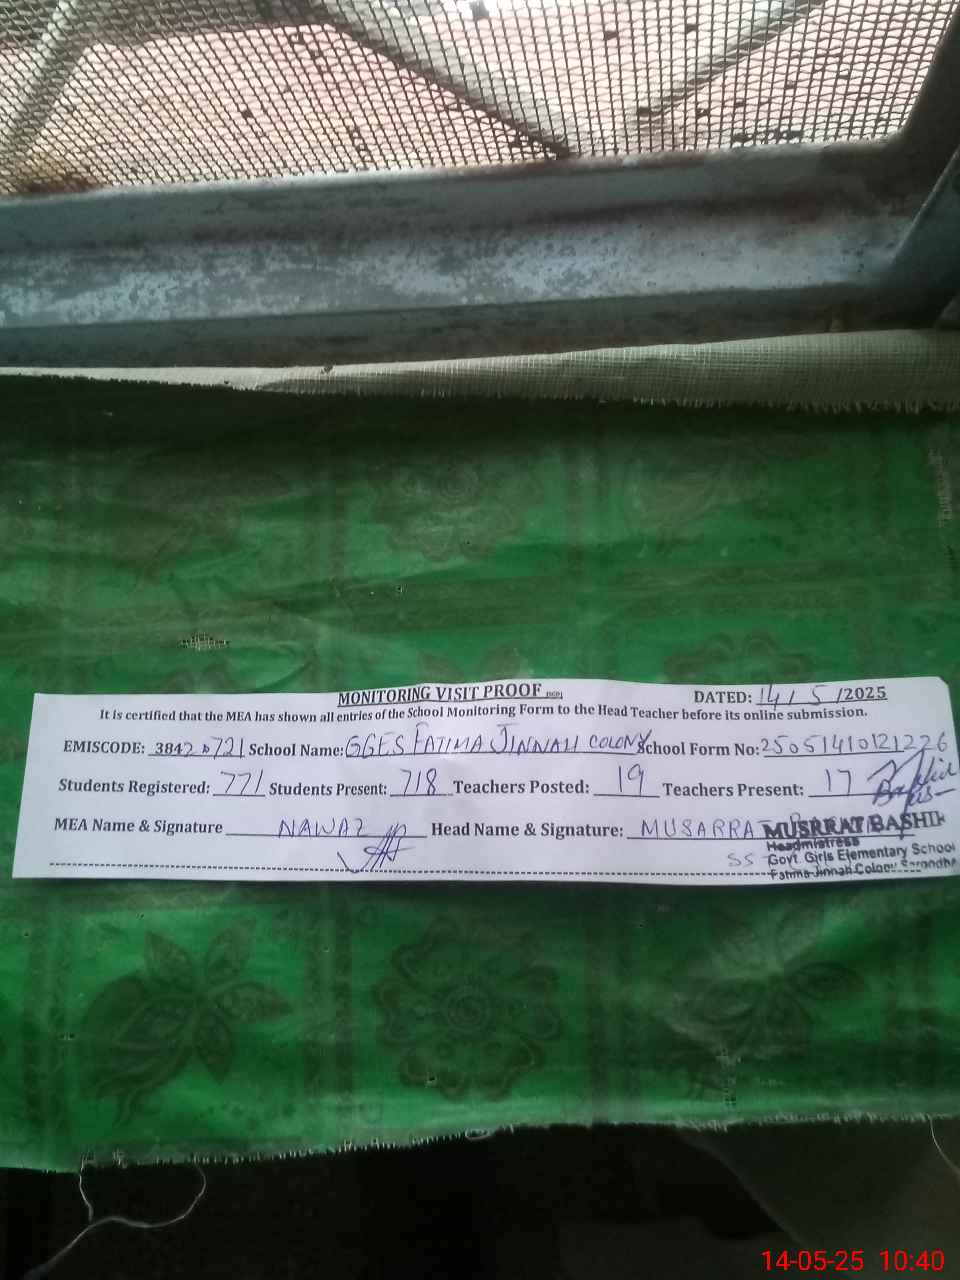 MONITORING VISIT PROOF
DATED: 14/5/2025
It is certified that the MEA has shown all entries of the School Monitoring Form to the Head Teacher before its online submission.
EMISCODE: 38420721 School Name: GGES FATIMA JINNAH COLONY School Form No: 25051410121226
Students Registered: 771 Students Present: 718 Teachers Posted: 19 Teachers Present: 17
MEA Name & Signature NAWAZ Head Name & Signature: MUSARRAT
MUSRRAT BASHIR
Headmistress
SS
Govt. Girls Elementary School
Fatima Jinnah Colony Sargodha
14-05-25 10:40